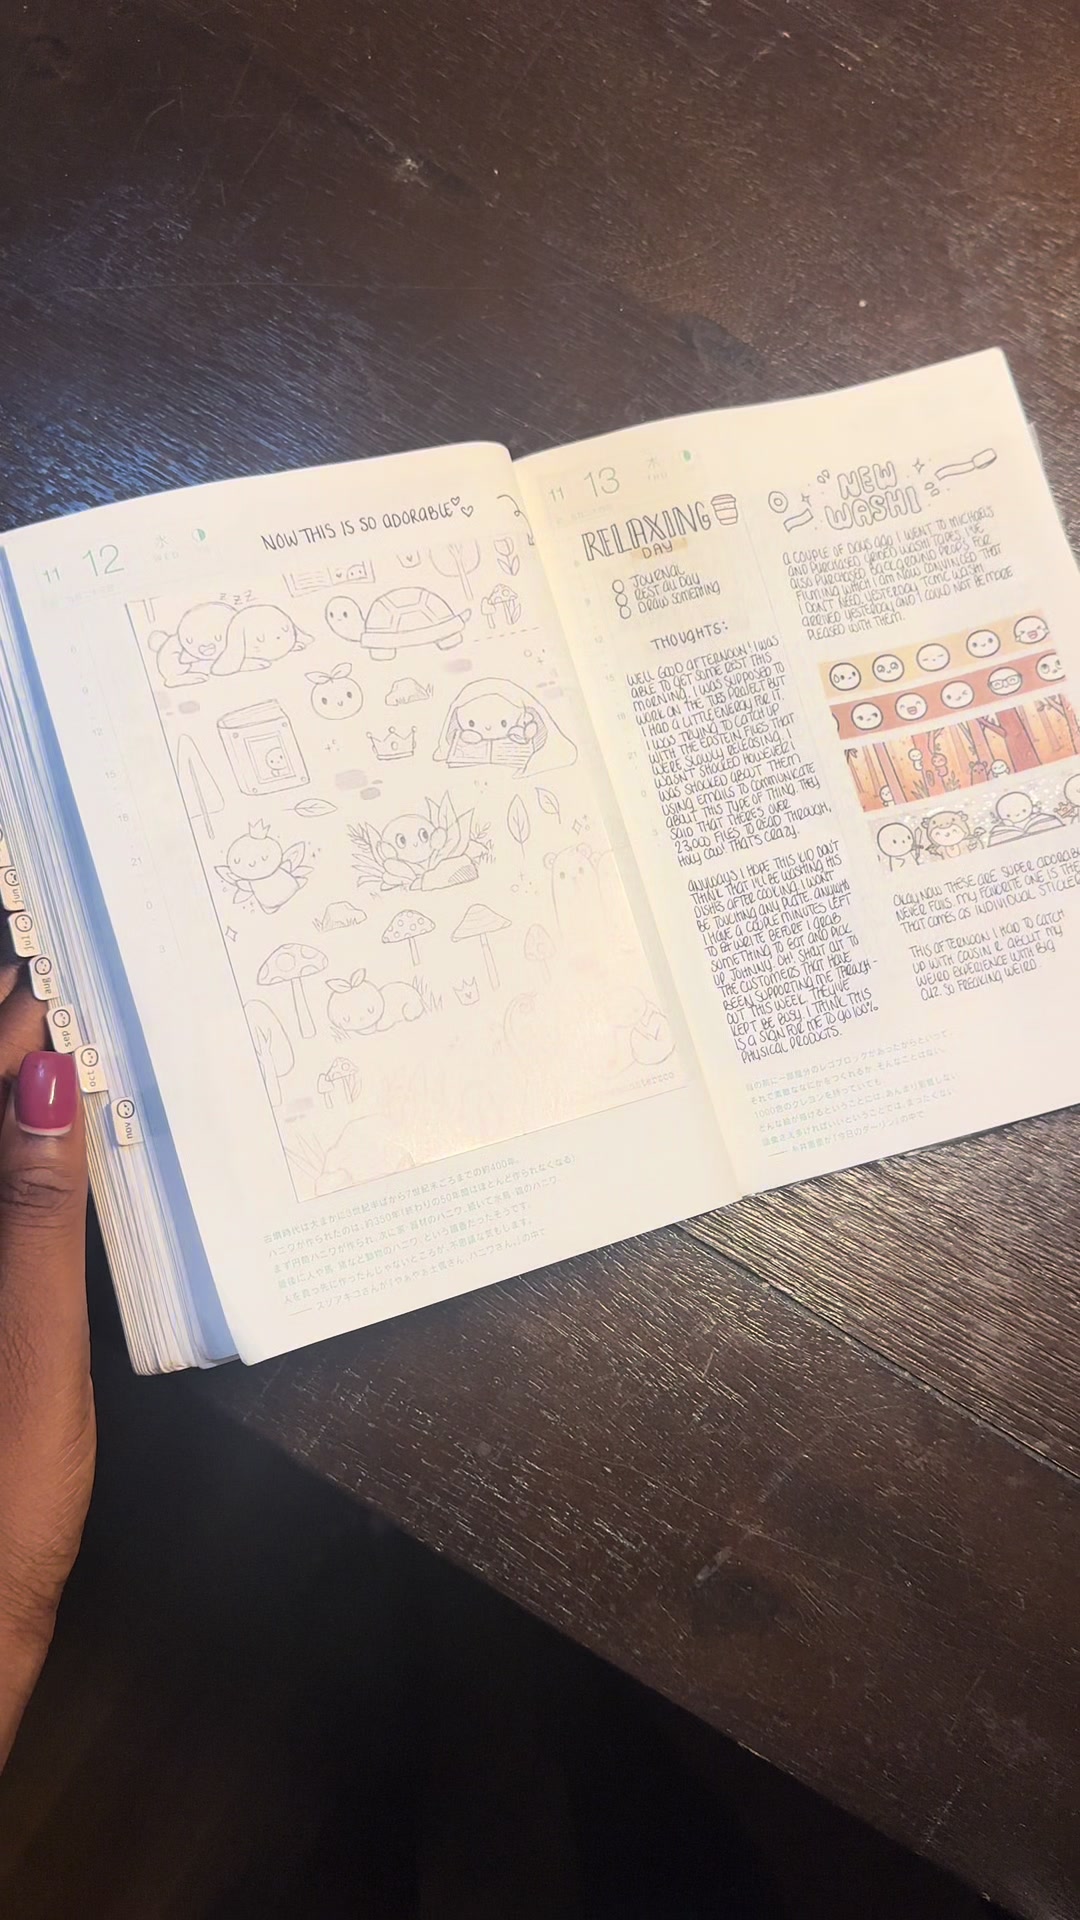 jun
jul
aug
sep
oct
nov
11 12
水
WED
NOW THIS IS SO ADORABLE
z z z
6
9
12
15
18
21
0
3
古墳時代は大まかに3世紀半ばから7世紀半ごろまでの約400年。
ハニワが作られたのは、約350年(終わりの50年間はほとんど作られなくなる)
11 13
木
THU
RELAXING
DAY
JOURNAL
REST ALL DAY
DRAW SOMETHING
THOUGHTS:
WELL GOOD AFTERNOON! I WAS
ABLE TO GET SOME REST THIS
MORNING. I WAS SUPPOSED TO
WORK ON THE PROJECT BUT
I HAD A LITTLE ENERGY FOR IT.
I WAS TRYING TO CATCH UP
WITH THE EPSTEIN FILES THAT
WERE SLOWLY RELEASING. I
WASN'T SHOCKED HOWEVER I
WAS SHOCKED ABOUT THEM
USING EMAILS TO COMMUNICATE
ABOUT THIS TYPE OF THING. THEY
SAID THAT THERE'S OVER
23,000 FILES TO READ THROUGH,
HOLY COW! THAT'S CRAZY.
ANYWAYS I HOPE THIS KID DON'T
THINK THAT I'LL BE WASHING HIS
DISHES AFTER COOKING. I WON'T
BE TOUCHING ANY PLATE. ANYWHO
I HAVE A COUPLE MINUTES LEFT
TO WRITE BEFORE I GRAB
SOMETHING TO EAT AND PICK
UP JOHNNY. OH! SHOUT OUT TO
THE CUSTOMERS THAT HAVE
BEEN SUPPORTING ME THROUGH-
OUT THIS WEEK. THEY'VE
KEPT BE BUSY. I THINK THIS
IS A SIGN FOR ME TO GO 100%
PHYSICAL PRODUCTS.
NEW
WASHI
A COUPLE OF DAYS AGO I WENT TO MICHAELS
AND PURCHASED GRIDED WASHI TAPES. I'VE
ALSO PURCHASED BACKGROUND PROPS FOR
FILMING WHICH I AM NOW CONVINCED THAT
I DON'T NEED. YESTERDAY WASHI
ARRIVED YESTERDAY AND I COULD NOT BE MORE
PLEASED WITH THEM.
OKAY NOW THESE ARE SUPER ADORABL
NEVER FAILS. MY FAVORITE ONE IS THE
THAT COMES AS INDIVIDUAL STICKE
THIS AFTERNOON I HAD TO CATCH
UP WITH COUSIN R. ABOUT MY
WEIRD EXPERIENCE WITH BIG
CUZ. SO FREAKING WEIRD.
それで素敵ななにかをつくれるか。そんなことはない。
1000色のクレヨンを持っていても、